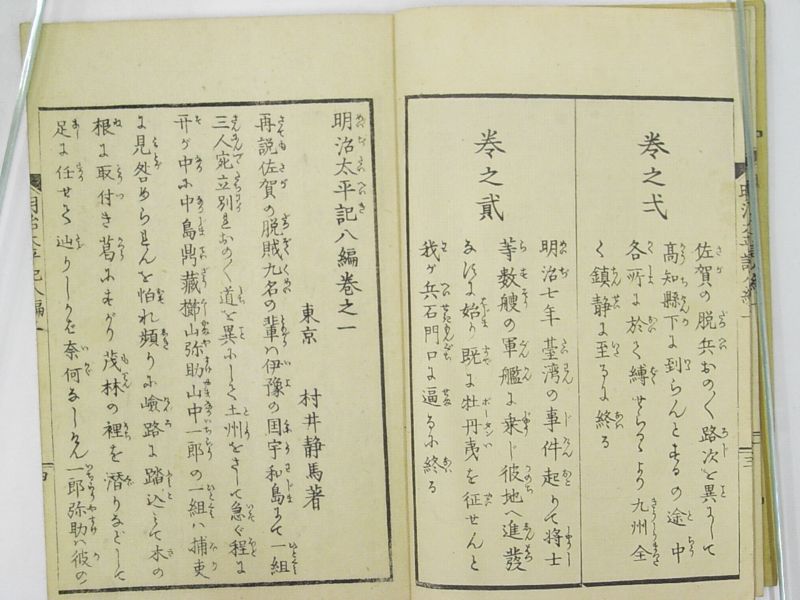 巻之弌
佐賀の脱兵おの〱路次を異にして
高知縣下に到らんとするの途中
各所に於て縛せらるゝより九州全
く鎮静に至るに終る
巻之貳
明治七年臺湾の事件起りて将士
等数艘の軍艦に乗じ彼地へ進發
なすに始り既に牡丹夷を征せんと
我が兵石門口に逼るに終る
明治太平記八編巻之一
東京 村井静馬著
再説佐賀の脱賊九名の輩ハ伊豫の国宇和島にて一組
三人宛立別れおの〱道を異にして土州をさして急ぐ程に
开が中に中島鼎藏櫛山弥助山中一郎の一組ハ捕吏
に見咎められんを怕れ頻りに嶮路に踏込て木の
根に取付き葛にすがり茂林の裡を潜りなどして
足に任せて辿りしかど奈何なしけん一郎弥助ハ彼の
明治太平記八編一